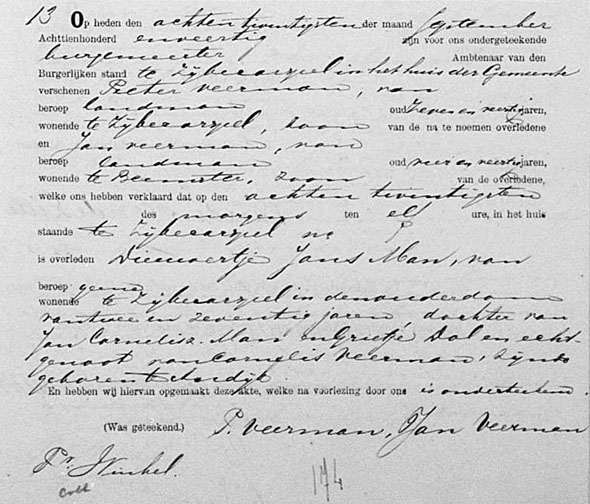 13 Op heden den achten twintigsten der maand September
Achttienhonderd en veertig zijn voor ons ondergeteekende
burgemeester Ambtenaar van den
Burgerlijken stand te Zijbecarspel in het huis der Gemeente
verschenen Pieter Veerman, van
beroep landman oud zeven en veertig jaren,
wonende te Zijbecarspel, zoon van de na te noemen overledene
en Jan Veerman, van
beroep landman oud vier en veertig jaren,
wonende te Beemster, zoon van de overledene,
welke ons hebben verklaard dat op den achten twintigsten
des morgens ten elf ure, in het huis
staande te Zijbecarspel no
is overleden Dieuwertje Jans Man, van
beroep geene
wonende te Zijbecarspel in den ouderdom
van twee en zeventig jaren, dochter van
Jan Cornelisz. Man en Grietje Dol en echt-
genoot van Cornelis Veerman, zijnde
geboren te Andijk
En hebben wij hiervan opgemaakt deze akte, welke na voorlezing door ons is onderteekend.
(Was geteekend.) P. Veerman, Jan Veerman
Pr. Winkel.
Coll
174